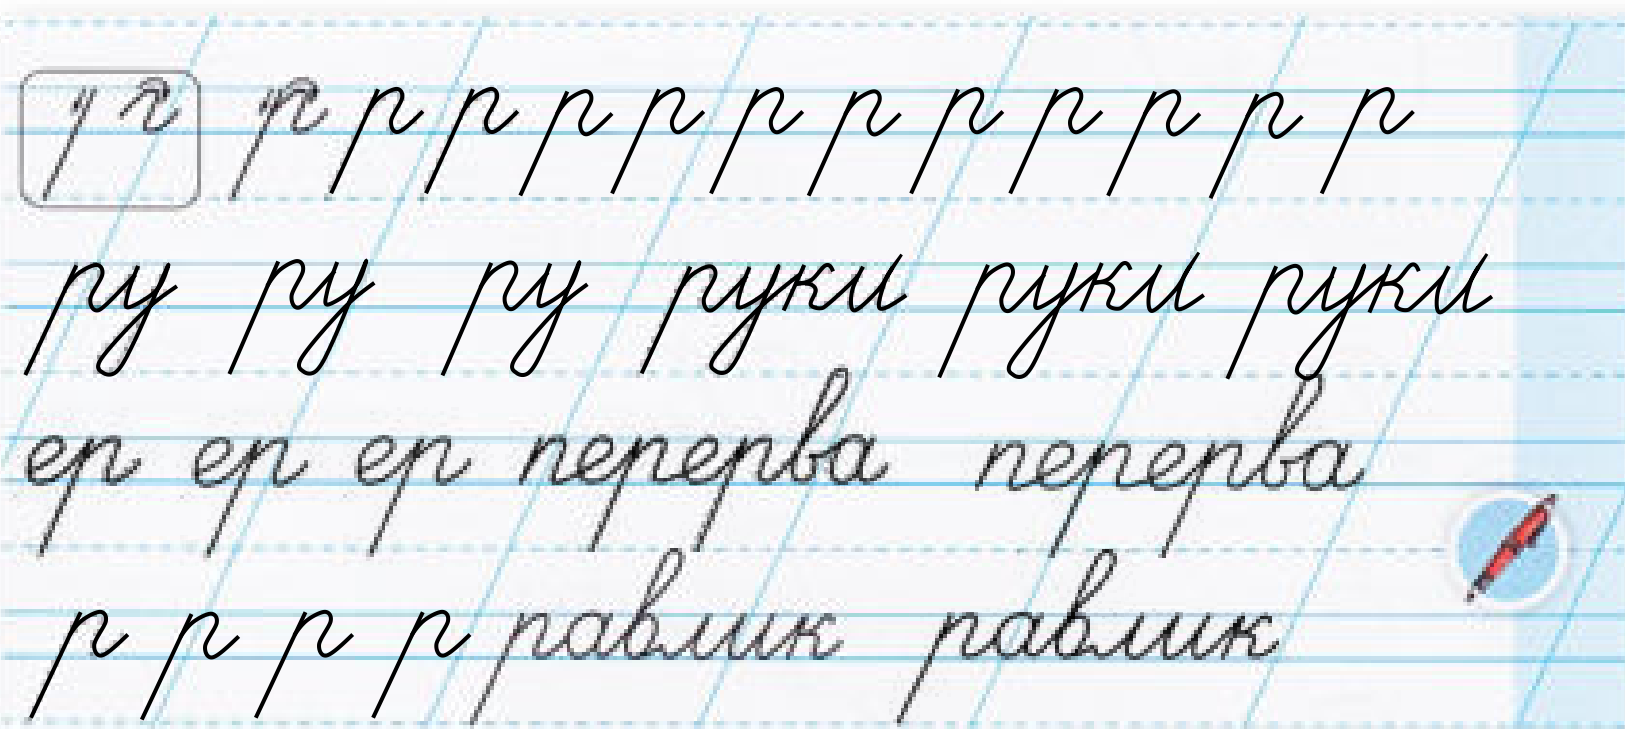 р р р р р р р р р р р р
ру ру ру руки руки руки
ер ер ер перерва перерва
р р р р равлик равлик